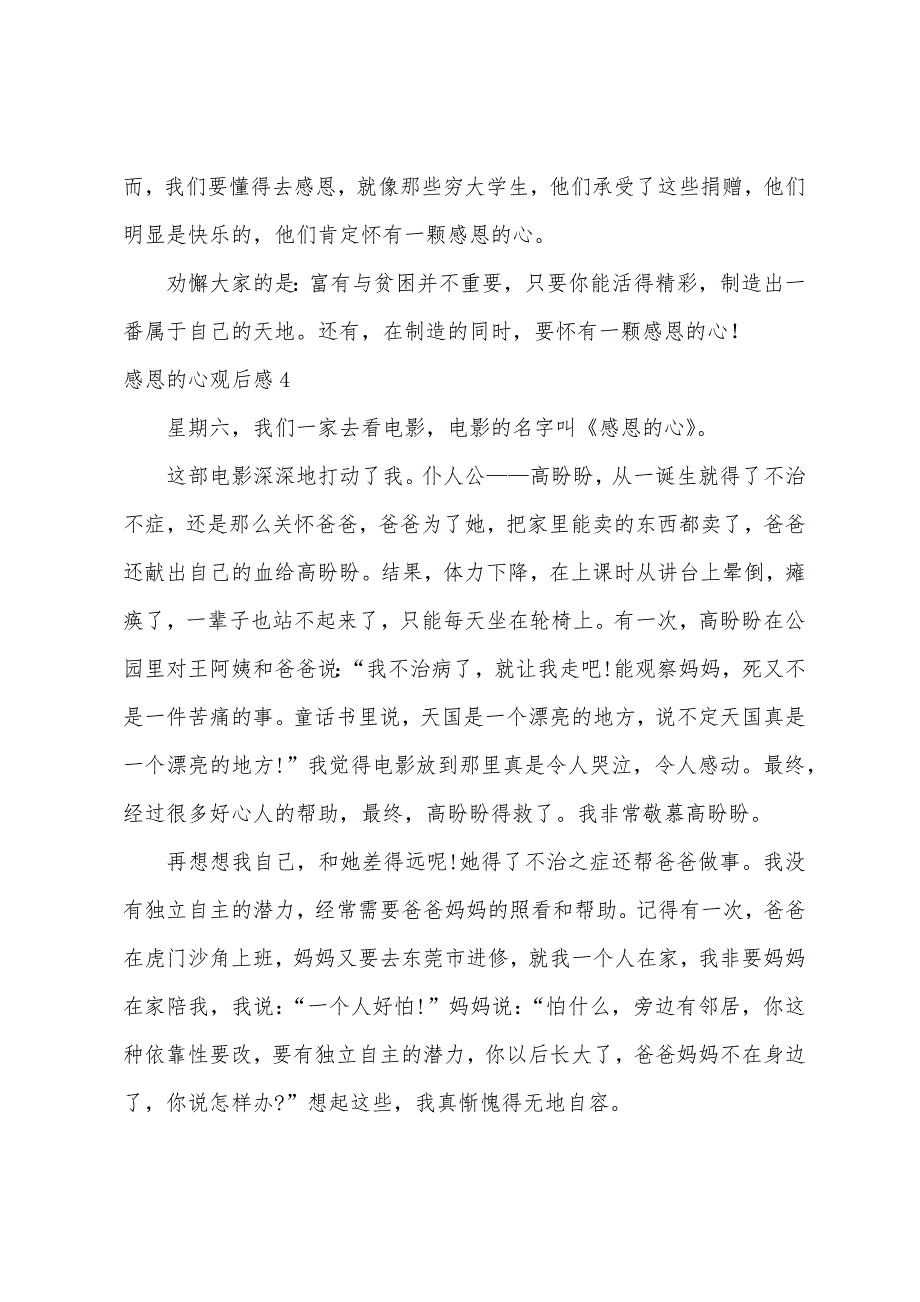 而，我们要懂得去感恩，就像那些穷大学生，他们承受了这些捐赠，他们
明显是快乐的，他们肯定怀有一颗感恩的心。
劝懈大家的是：富有与贫困并不重要，只要你能活得精彩，制造出一
番属于自己的天地。还有，在制造的同时，要怀有一颗感恩的心！
感恩的心观后感 4
星期六，我们一家去看电影，电影的名字叫《感恩的心》。
这部电影深深地打动了我。仆人公——高盼盼，从一诞生就得了不治
不症，还是那么关怀爸爸，爸爸为了她，把家里能卖的东西都卖了，爸爸
还献出自己的血给高盼盼。结果，体力下降，在上课时从讲台上晕倒，瘫
痪了，一辈子也站不起来了，只能每天坐在轮椅上。有一次，高盼盼在公
园里对王阿姨和爸爸说：“我不治病了，就让我走吧！能观察妈妈，死又不
是一件苦痛的事。童话书里说，天国是一个漂亮的地方，说不定天国真是
一个漂亮的地方！”我觉得电影放到那里真是令人哭泣，令人感动。最终，
经过很多好心人的帮助，最终，高盼盼得救了。我非常敬慕高盼盼。
再想想我自己，和她差得远呢！她得了不治之症还帮爸爸做事。我没
有独立自主的潜力，经常需要爸爸妈妈的照看和帮助。记得有一次，爸爸
在虎门沙角上班，妈妈又要去东莞市进修，就我一个人在家，我非要妈妈
在家陪我，我说：“一个人好怕！”妈妈说：“怕什么，旁边有邻居，你这
种依靠性要改，要有独立自主的潜力，你以后长大了，爸爸妈妈不在身边
了，你说怎样办？”想起这些，我真惭愧得无地自容。